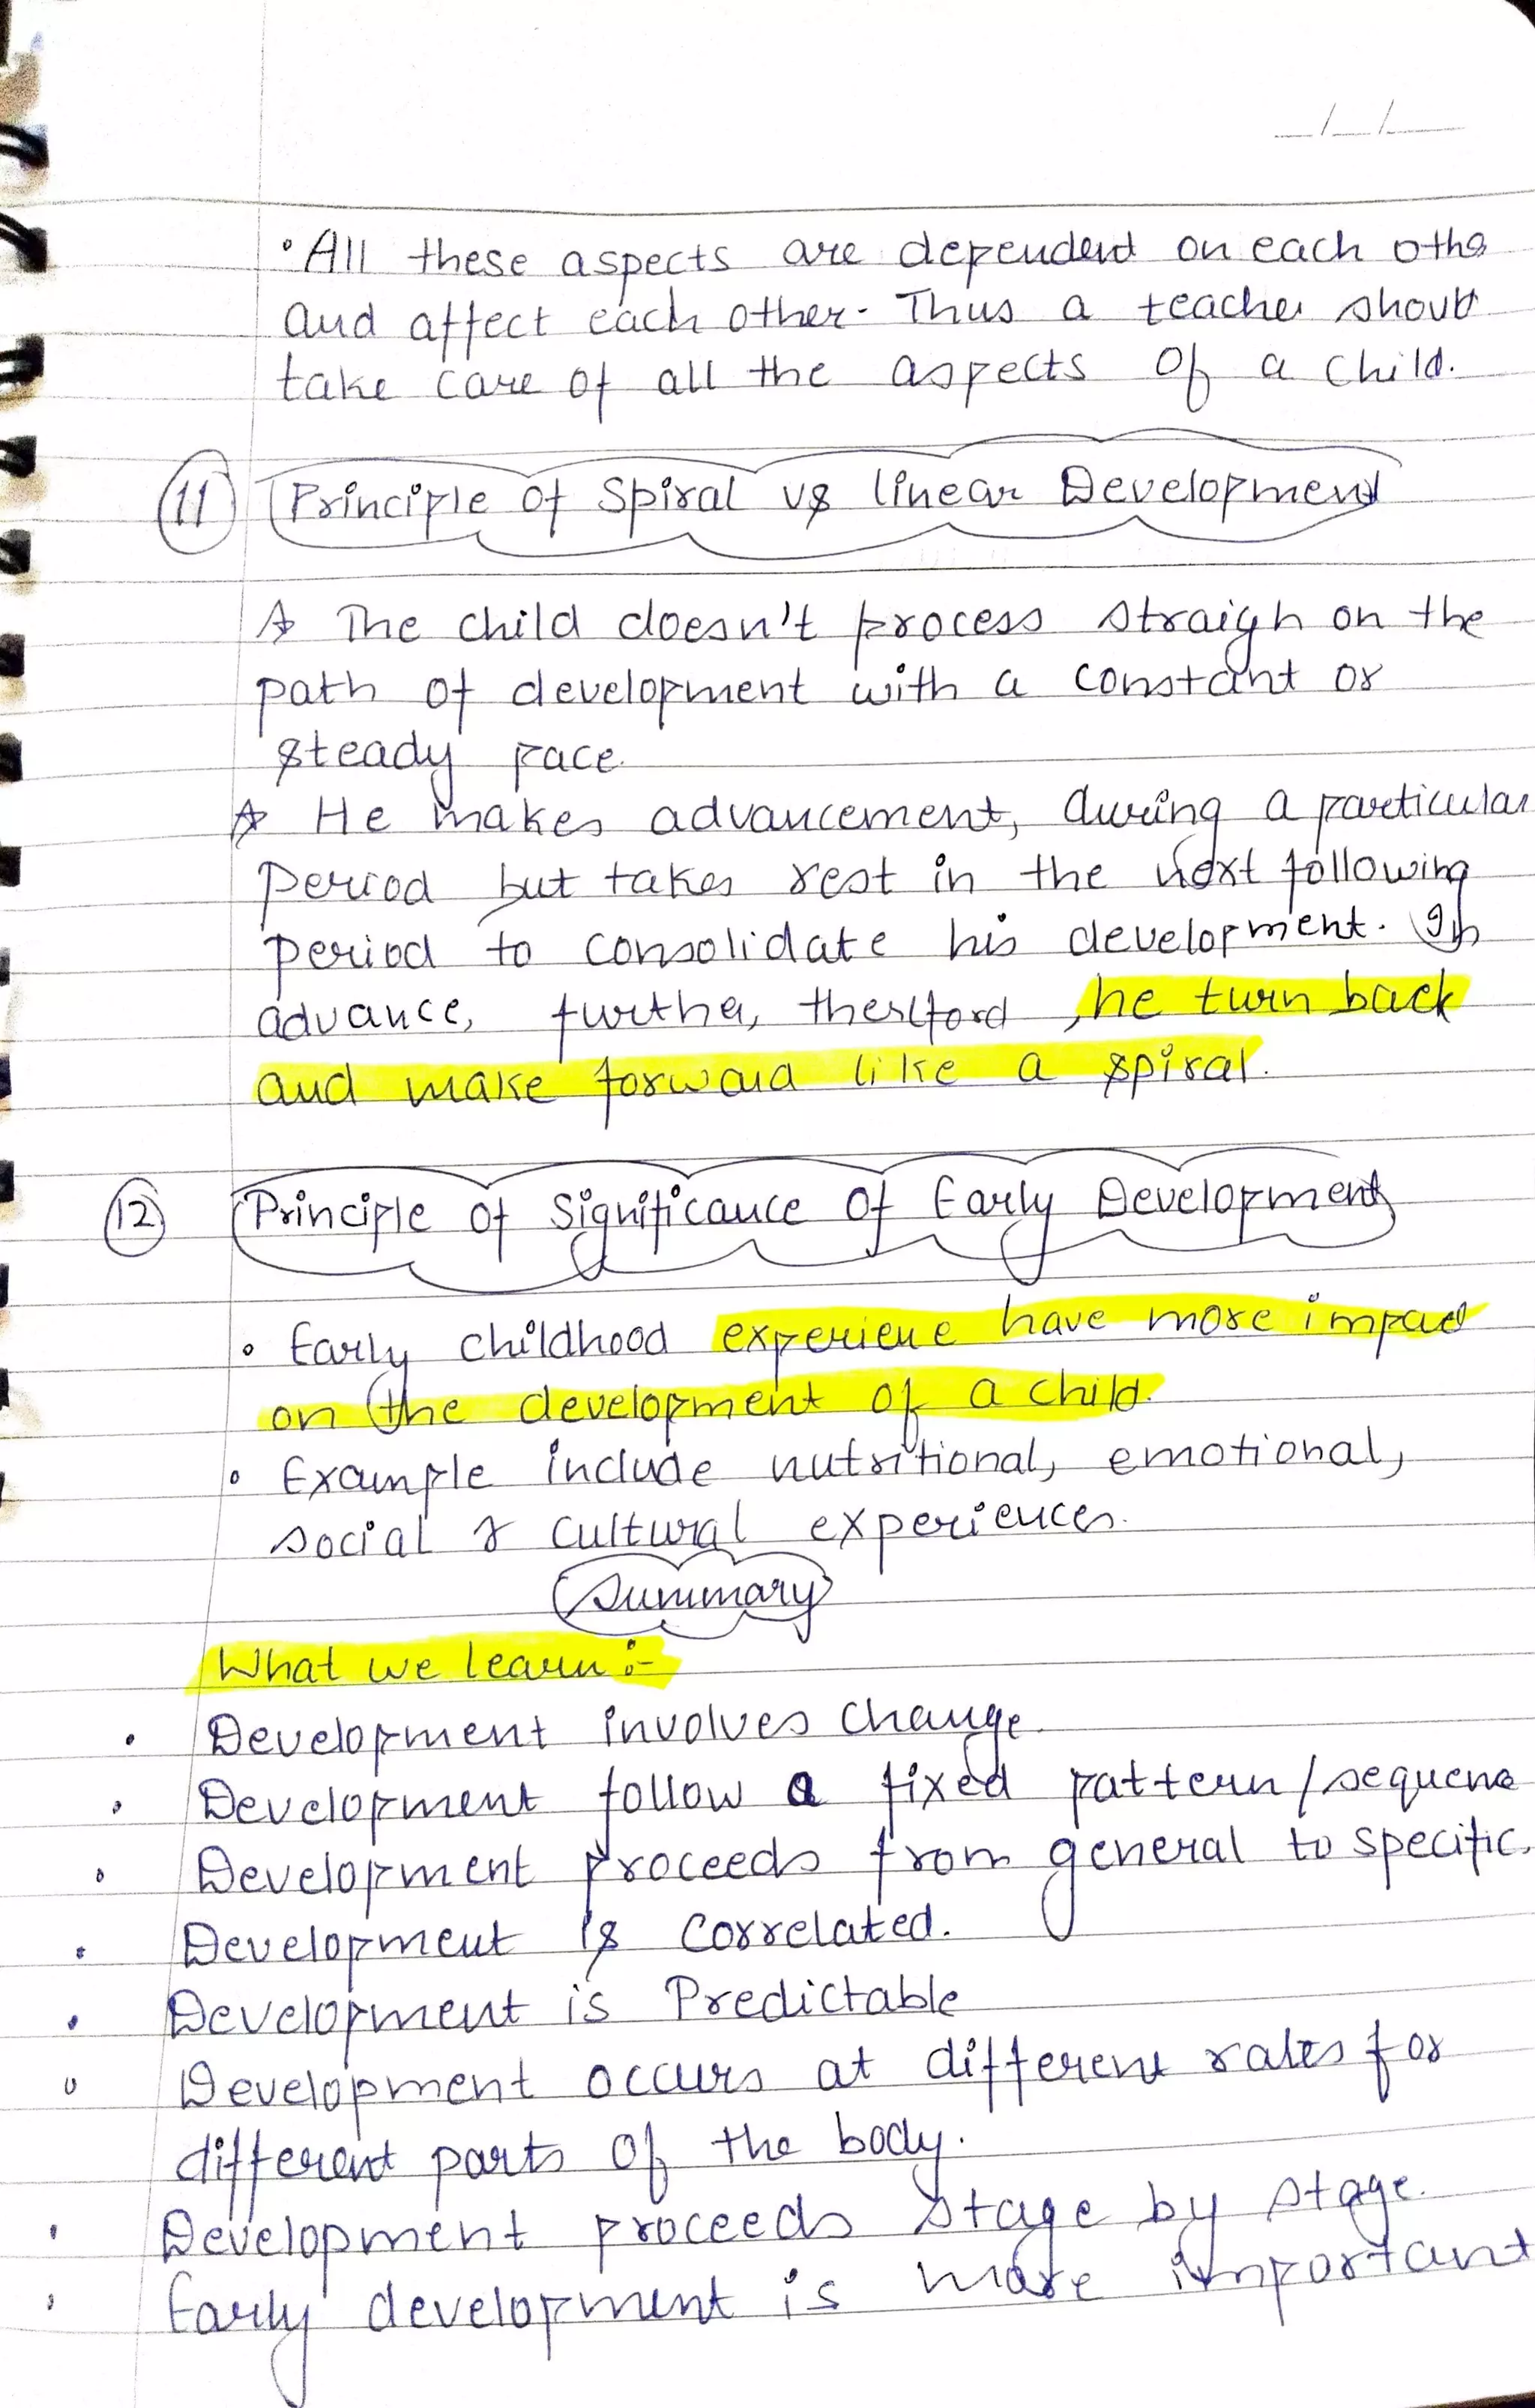 _/_/_
• All these aspects are dependent on each othe
and affect each other. Thus a teacher should
take care of all the aspects of a child.
11 Principle of Spiral vs linear Development
☆ The child doesn't process straigh on the
path of development with a constant or
steady pace.
☆ He makes advancement, during a particular
period but takes rest in the next following
period to consolidate his development. In
advance, further, thereford, he turn back
and make forward like a spiral.
12 Principle of Significance of Early Development
• Early childhood experience have more impact
on the development of a child.
• Example include nutritional, emotional,
social & cultural experiences.
Summary
What we learn :-
• Development involves change.
• Development follow a fixed pattern/sequence
• Development proceeds from general to specific.
• Development is correlated.
• Development is Predictable
• Development occurs at different rates for
different parts of the body.
• Development proceeds stage by stage.
• Early development is more important